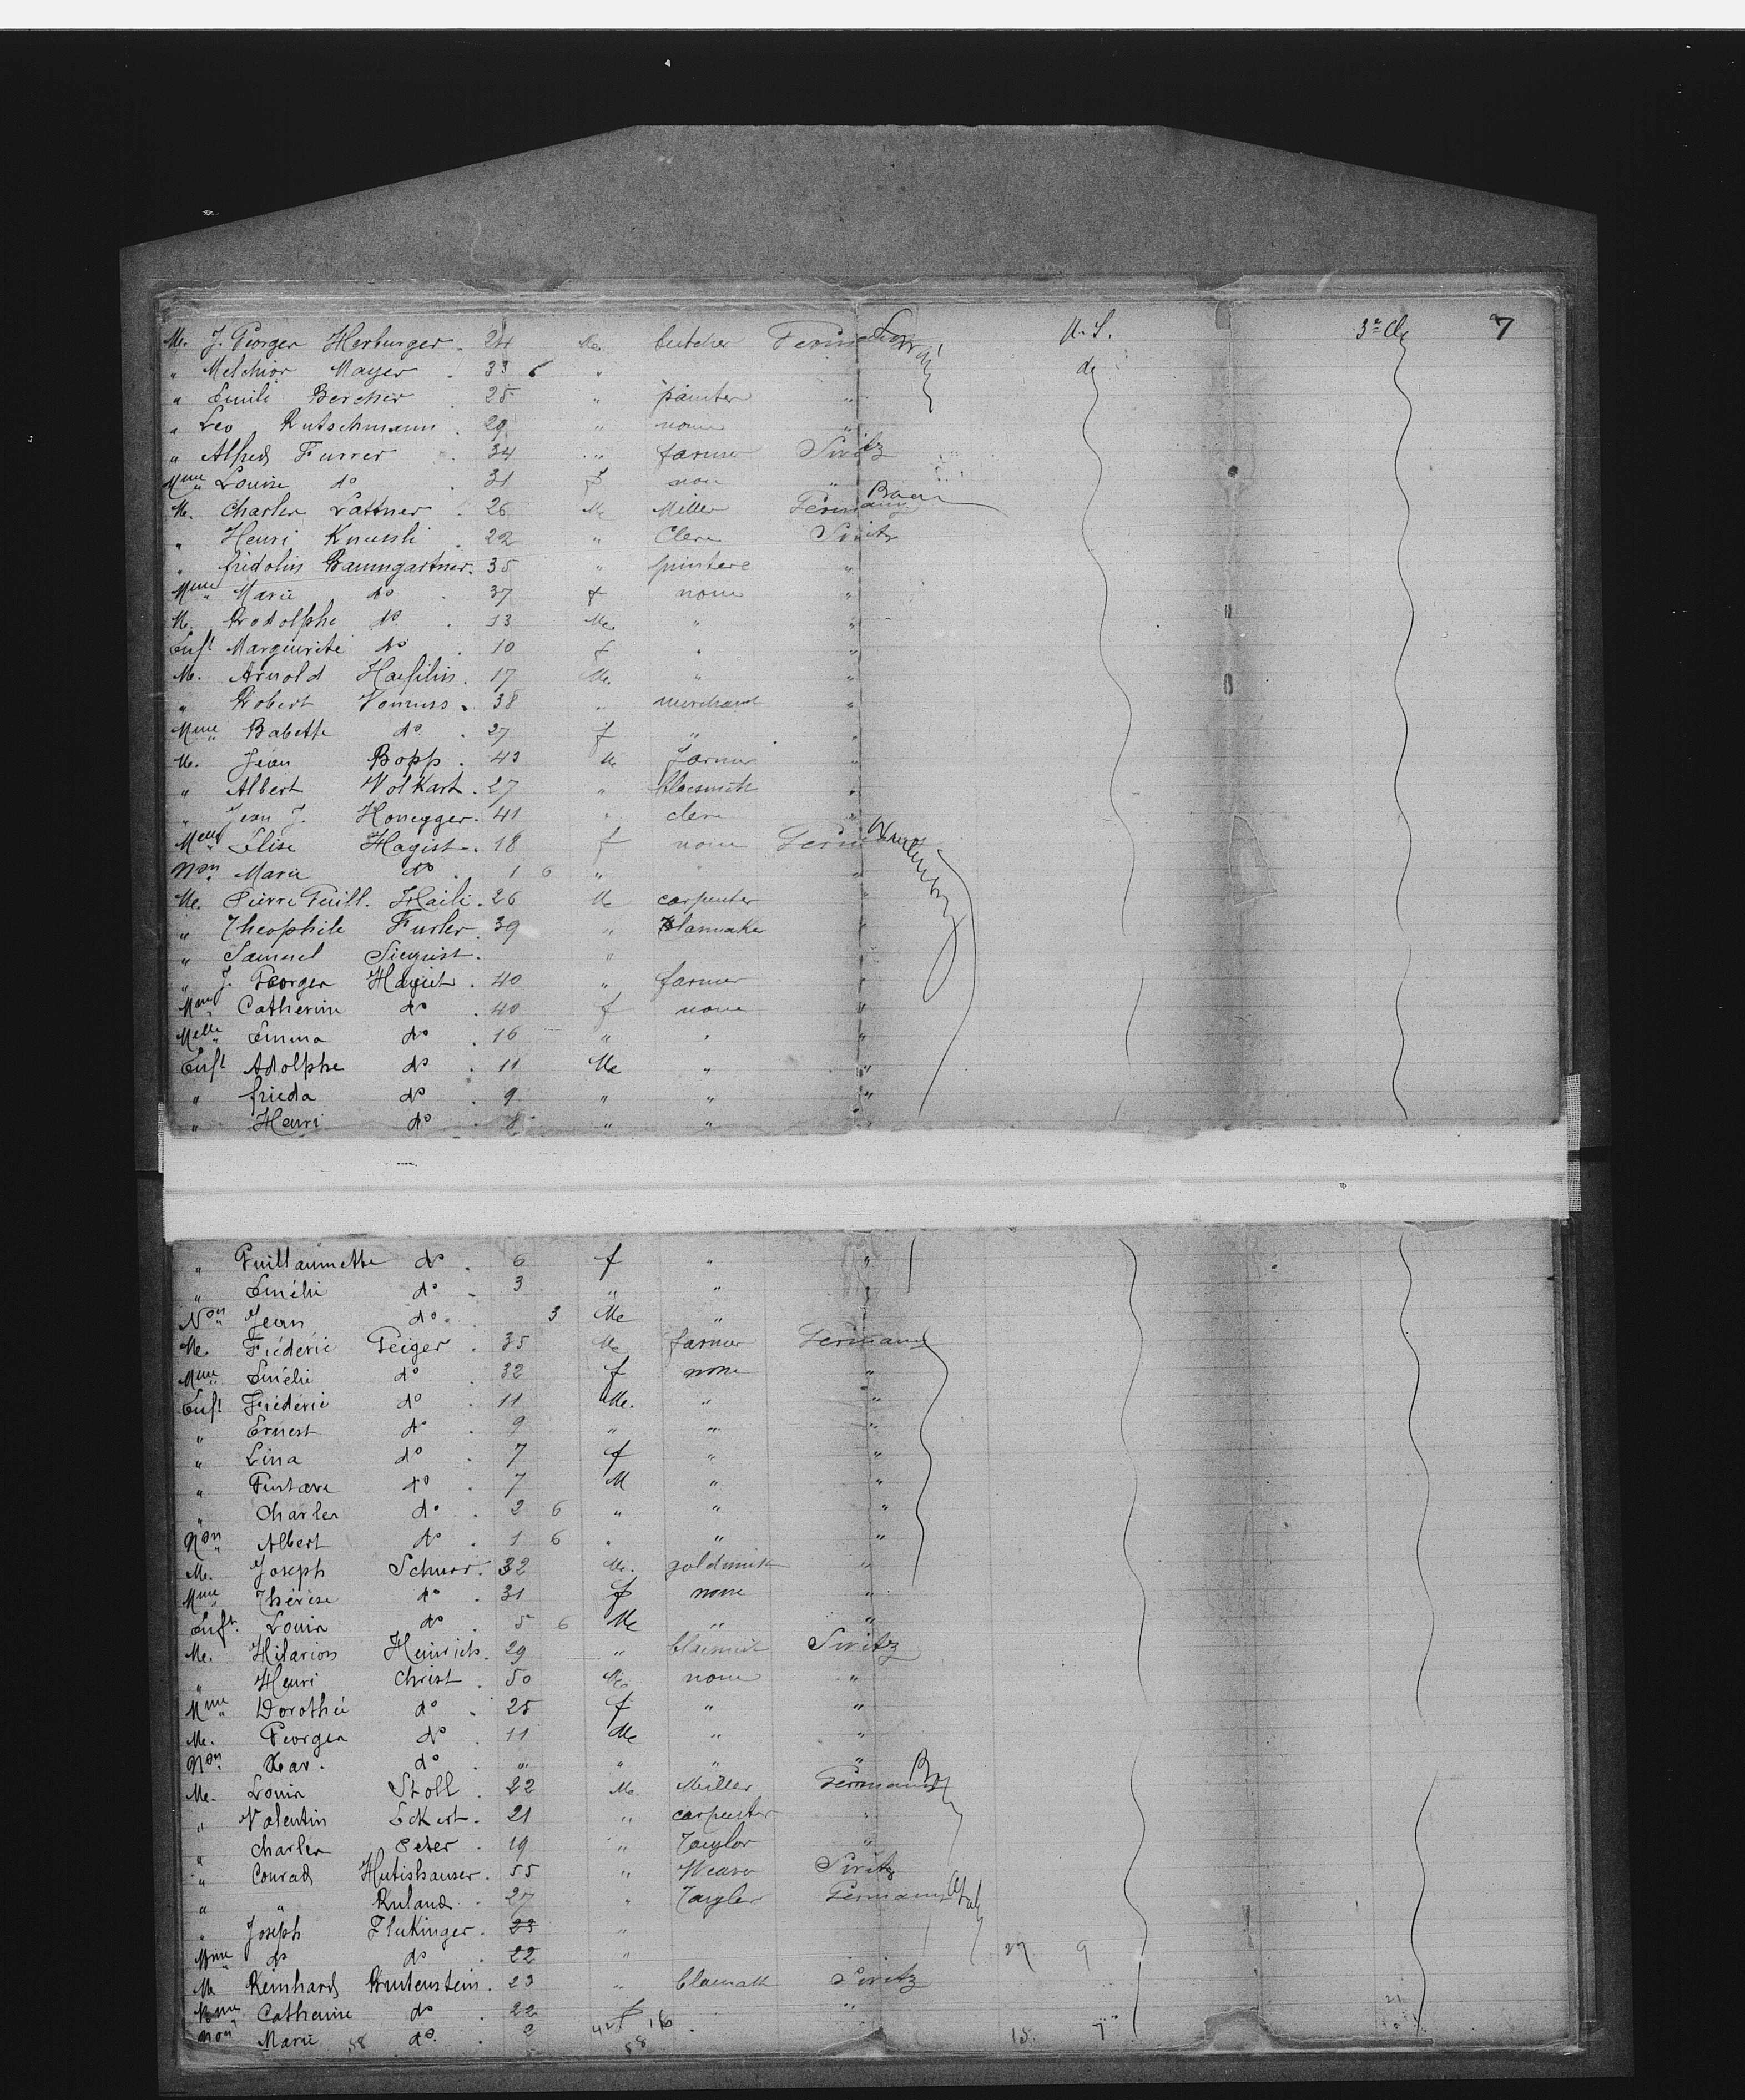 M. J. Georges Herburger. 24 M. butcher Germ U. S. 3e Cl 7
" Melchior Mayer . 33 6 " do
" Emile Bercher . 25 " painter "
" Leo Rutschmann . 29 " none "
" Alfred Furrer . 34 " farmer Switz
Mme " Louise do . 31 f non "
M. Charles Lattner . 26 M Miller Germany
" Henri Knussli . 22 " Clerc Switz
" fridolin Baumgartner. 35 " "
Mme " Marie do . 37 f none "
M. Rodolphe do . 13 M. " "
Enft Marguerite do . 10 f " "
M. Arnold Haefilin . 17 M. " "
" Robert . 38 " merchand "
Mme " Babette do . 27 f " "
M. Jean Bopp . 43 M farmer "
" Albert Volkart . 27 " blacsmith "
" Jean J. Honegger . 41 " clerc "
Melle " Élise Hagist . 18 f none Germ
Non " Marie do . 1 6 " " "
M. Pierre Guill. Haili . 26 M carpenter "
" Théophile Furler . 39 " "
" Samuel Siegrist . "
" J. Georges Hagist . 40 " farmer "
Mme " Catherine do . 40 f none "
Melle " Emma do . 16 " " "
Enft Adolphe do . 11 M " "
" frieda do . 9 " " "
" Henri do . 8 " " "
" Guillaumette do . 6 f " "
" Emélie do . 3 " " "
Non " Jean do . 3 M "
M. Frédéric Geiger . 35 M farmer Germany
Mme " Emélie do . 32 f none "
Enft Frédéric do . 11 M. " "
" Ernest do . 9 " " "
" Lina do . 7 f " "
" Gustave do . 7 M " "
" Charles do . 2 6 " " "
Non " Albert do . 1 6 " " "
M. Joseph Schurr . 32 M. goldsmith "
Mme " Thérèse do . 31 f none "
Enft. Louis do . 5 6 M " "
M. Hilarion Heinrich . 29 " Switz
" Henri Christ . 50 M none "
Mme " Dorothée do . 25 f " "
M. Georges do . 11 M " "
Non " Xav. do . " " " "
M. Louis Stoll . 22 M Miller Germany
" Valentin Eckert . 21 " carpenter "
" Charles Peter . 19 " Taylor "
" Conrad Hutishauser . 55 " Weaver Switz
" " Ruland . 27 " Tayler Germany
" Joseph Flukinger . 23 "
Mme do do . 22 " 27 9
M Reinhard . 23 " Switz
Mme Catherine do . 22 f "
Non " Marie 58 do . 2 58 15 7